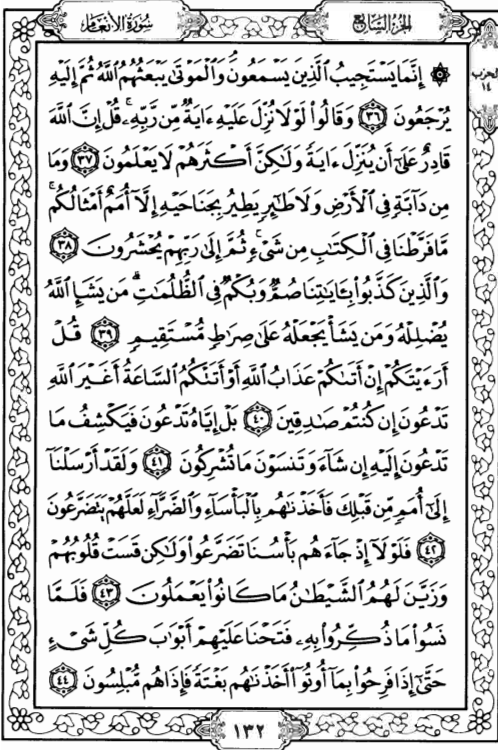 سورة الأنعام
الجزء السابع
الحزب
١٤
۞ إِنَّمَا يَسْتَجِيبُ ٱلَّذِينَ يَسْمَعُونَۘ وَٱلْمَوْتَىٰ يَبْعَثُهُمُ ٱللَّهُ ثُمَّ إِلَيْهِ
يُرْجَعُونَ ٣٦ وَقَالُوا۟ لَوْلَا نُزِّلَ عَلَيْهِ ءَايَةٌ مِّن رَّبِّهِۦۚ قُلْ إِنَّ ٱللَّهَ
قَادِرٌ عَلَىٰٓ أَن يُنَزِّلَ ءَايَةً وَلَٰكِنَّ أَكْثَرَهُمْ لَا يَعْلَمُونَ ٣٧ وَمَا
مِن دَآبَّةٍ فِى ٱلْأَرْضِ وَلَا طَٰٓئِرٍ يَطِيرُ بِجَنَاحَيْهِ إِلَّآ أُمَمٌ أَمْثَالُكُمۚ
مَّا فَرَّطْنَا فِى ٱلْكِتَٰبِ مِن شَىْءٍۚ ثُمَّ إِلَىٰ رَبِّهِمْ يُحْشَرُونَ ٣٨
وَٱلَّذِينَ كَذَّبُوا۟ بِـَٔايَٰتِنَا صُمٌّ وَبُكْمٌ فِى ٱلظُّلُمَٰتِۗ مَن يَشَإِ ٱللَّهُ
يُضْلِلْهُ وَمَن يَشَأْ يَجْعَلْهُ عَلَىٰ صِرَٰطٍ مُّسْتَقِيمٍ ٣٩ قُلْ
أَرَءَيْتَكُمْ إِنْ أَتَىٰكُمْ عَذَابُ ٱللَّهِ أَوْ أَتَتْكُمُ ٱلسَّاعَةُ أَغَيْرَ ٱللَّهِ
تَدْعُونَ إِن كُنتُمْ صَٰدِقِينَ ٤٠ بَلْ إِيَّاهُ تَدْعُونَ فَيَكْشِفُ مَا
تَدْعُونَ إِلَيْهِ إِن شَآءَ وَتَنسَوْنَ مَا تُشْرِكُونَ ٤١ وَلَقَدْ أَرْسَلْنَآ
إِلَىٰٓ أُمَمٍ مِّن قَبْلِكَ فَأَخَذْنَٰهُم بِٱلْبَأْسَآءِ وَٱلضَّرَّآءِ لَعَلَّهُمْ يَتَضَرَّعُونَ
٤٢ فَلَوْلَآ إِذْ جَآءَهُم بَأْسُنَا تَضَرَّعُوا۟ وَلَٰكِن قَسَتْ قُلُوبُهُمْ
وَزَيَّنَ لَهُمُ ٱلشَّيْطَٰنُ مَا كَانُوا۟ يَعْمَلُونَ ٤٣ فَلَمَّا
نَسُوا۟ مَا ذُكِّرُوا۟ بِهِۦ فَتَحْنَا عَلَيْهِمْ أَبْوَٰبَ كُلِّ شَىْءٍ
حَتَّىٰٓ إِذَا فَرِحُوا۟ بِمَآ أُوتُوٓا۟ أَخَذْنَٰهُم بَغْتَةً فَإِذَا هُم مُّبْلِسُونَ ٤٤
١٣٢